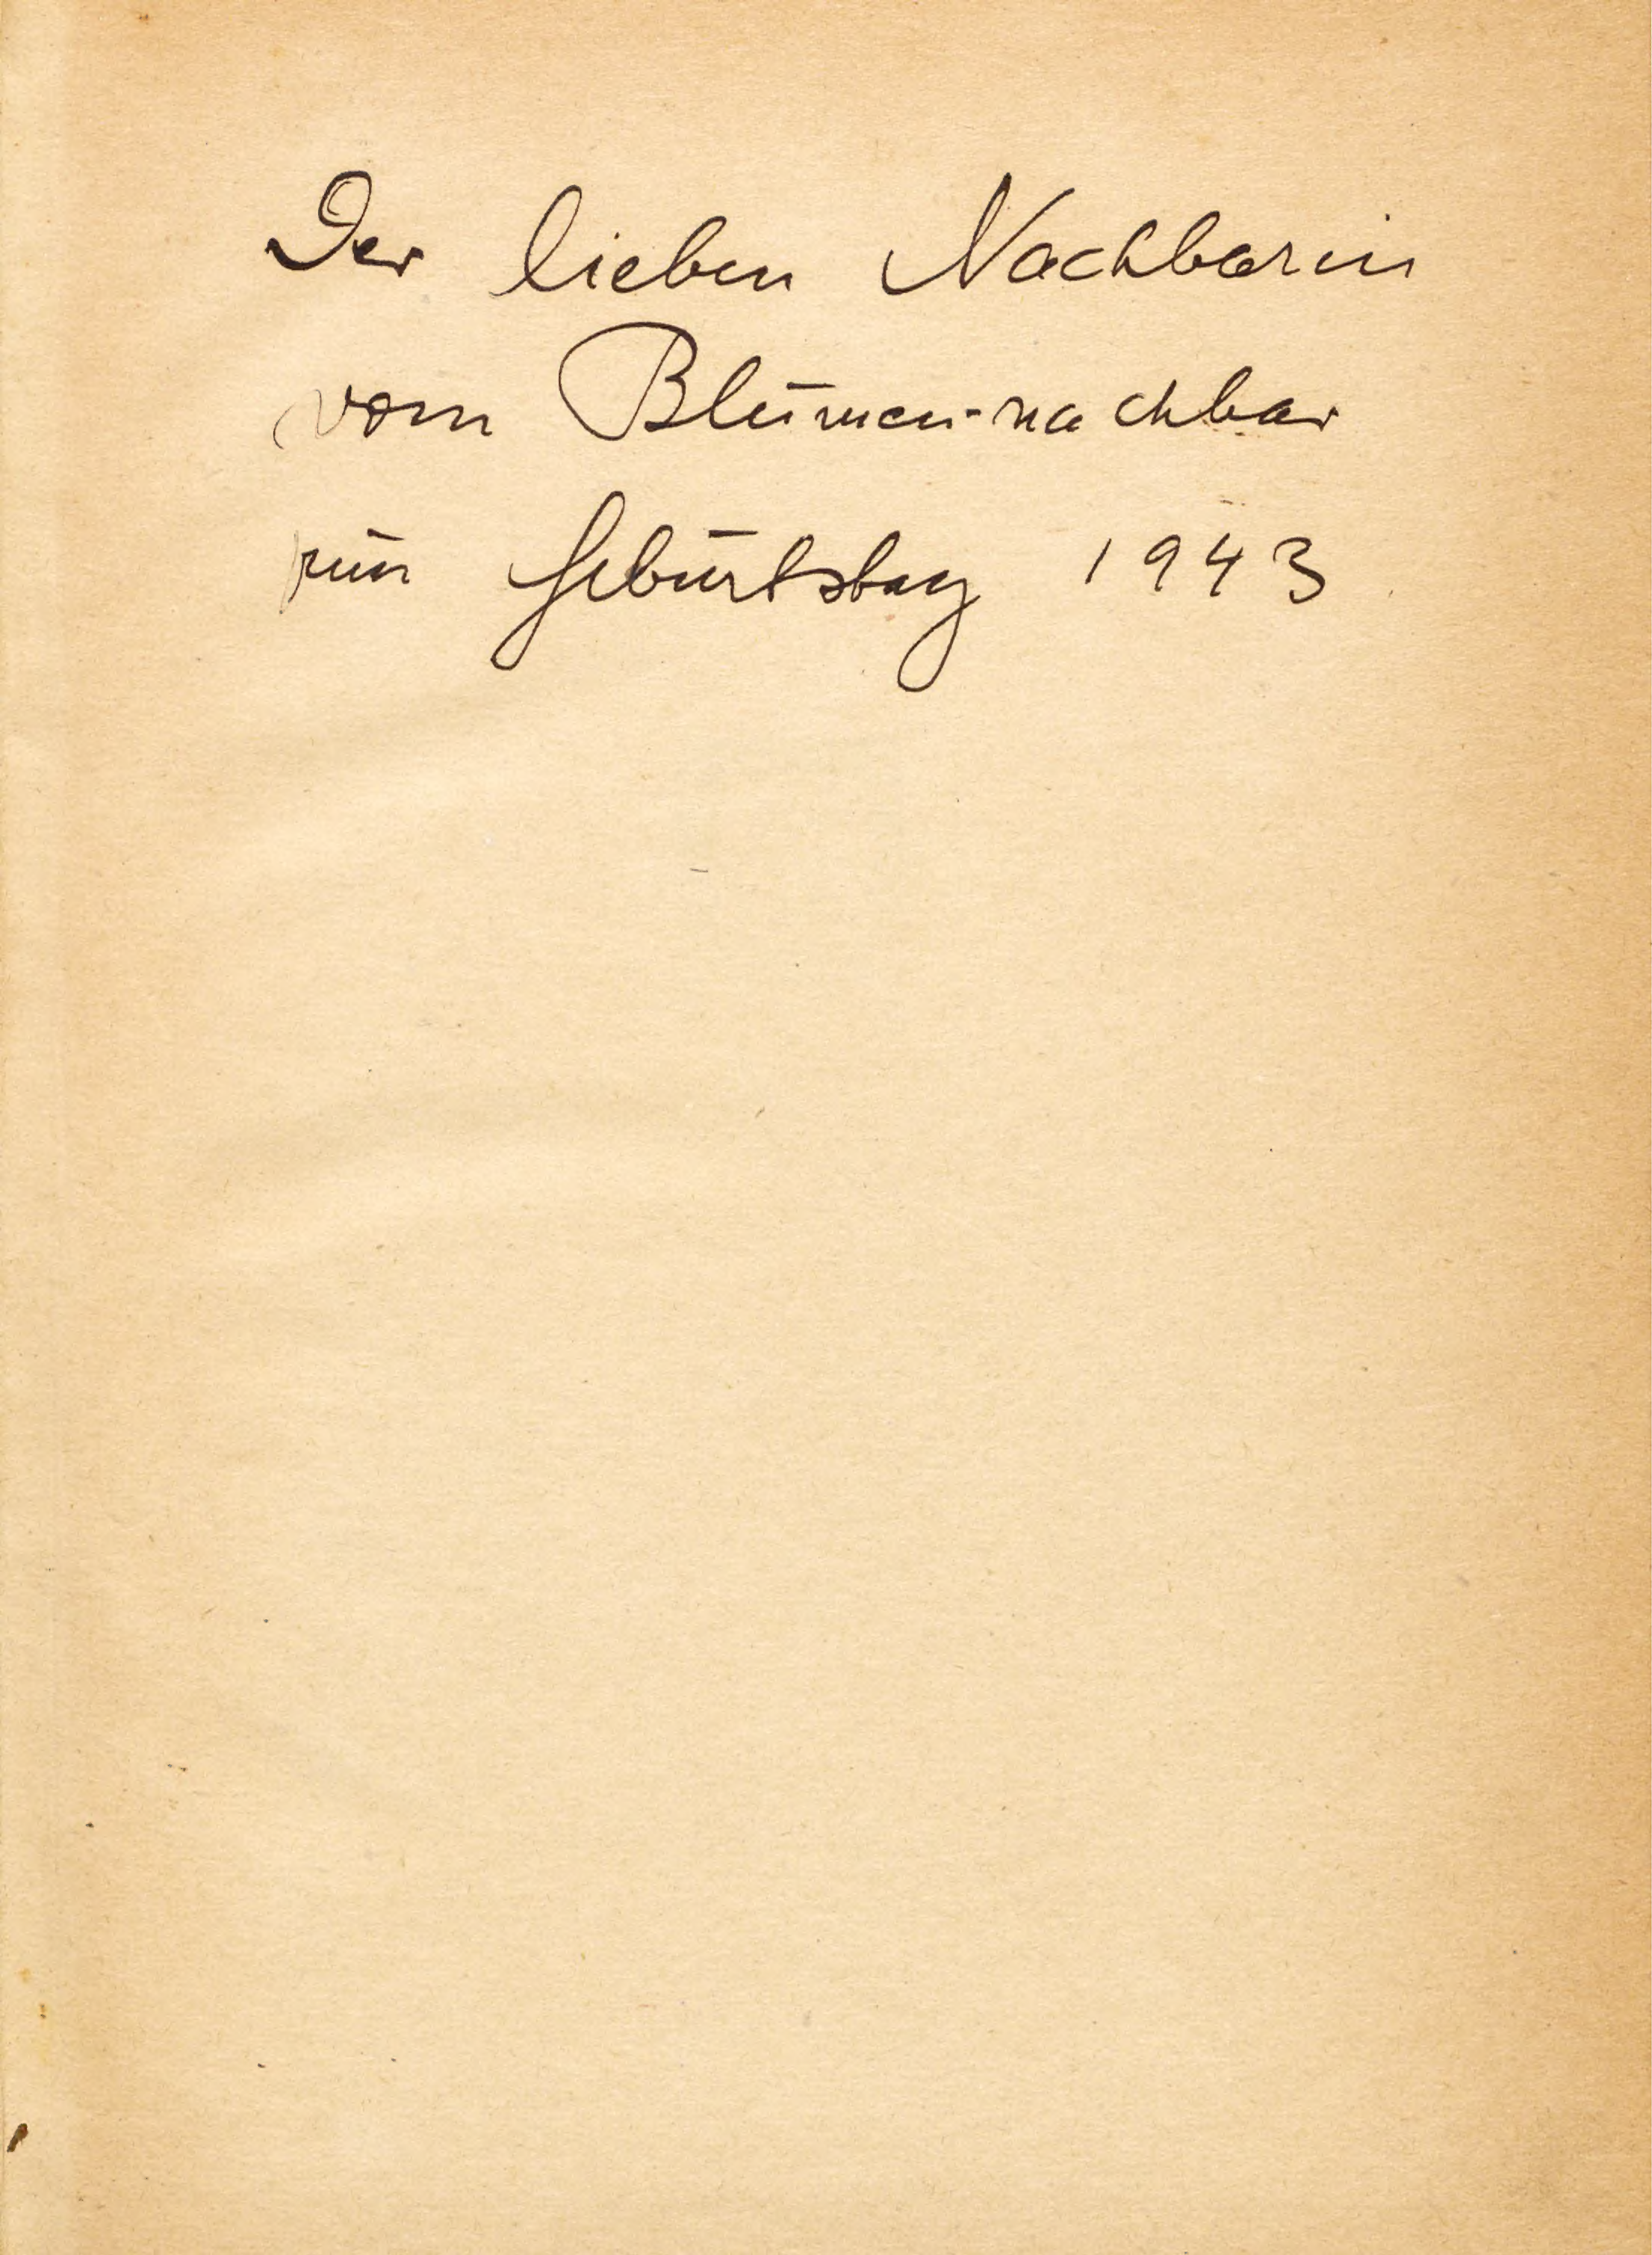 Der lieben Nachbarin
vom Blumen-nachbar
zum Geburtstag 1943